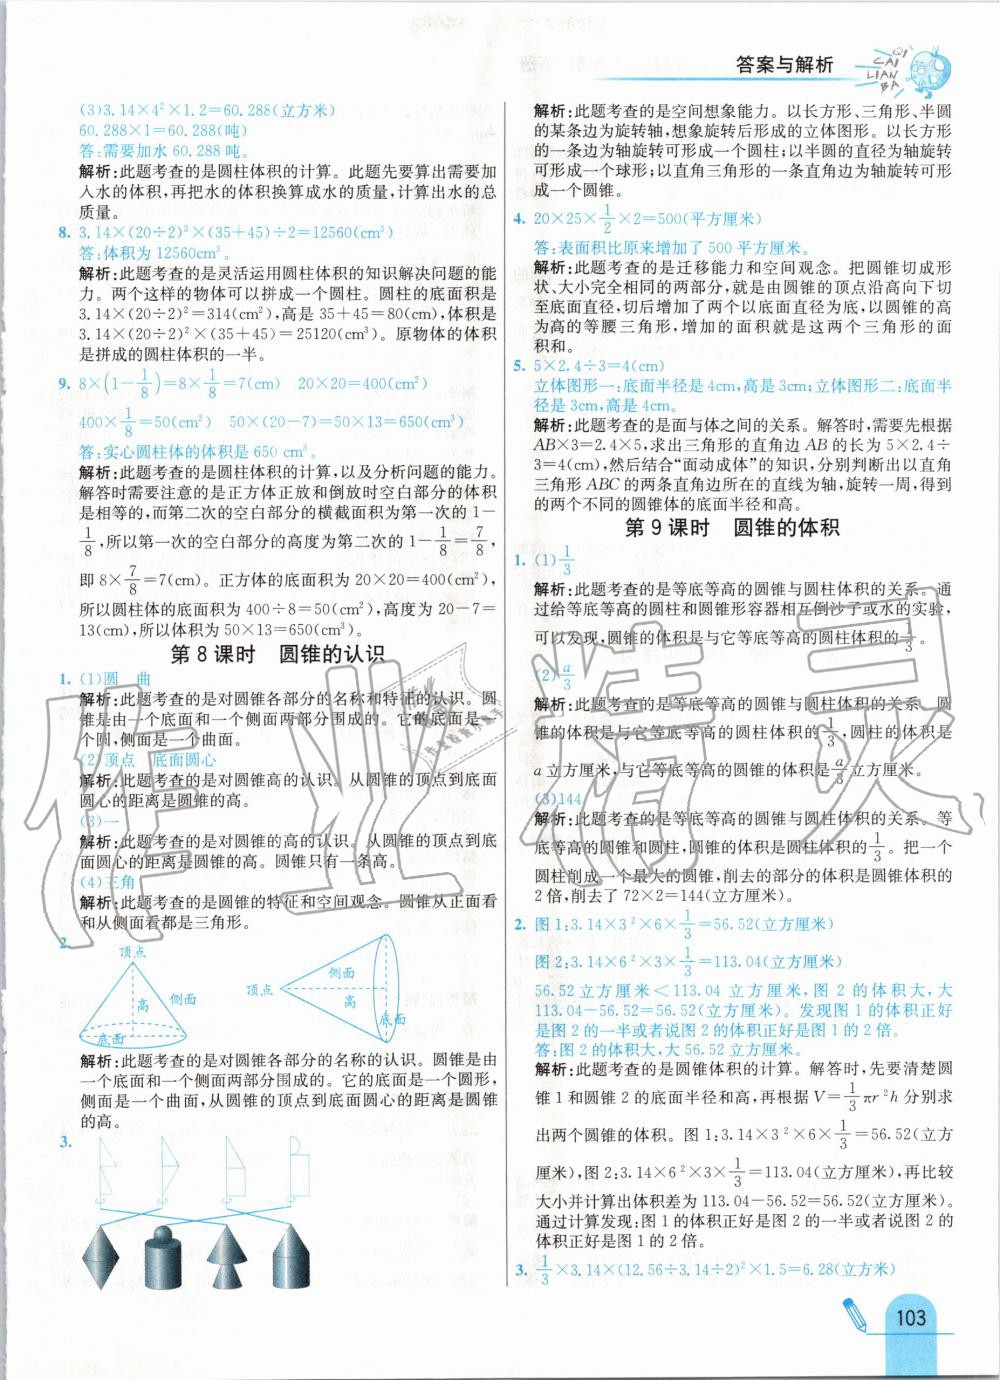 答案与解析
QI
CAI
LIAN
BA
(3)3.14×4²×1.2=60.288(立方米)
60.288×1=60.288(吨)
答:需要加水 60.288 吨。
解析:此题考查的是圆柱体积的计算。此题先要算出需要加
入水的体积,再把水的体积换算成水的质量,计算出水的总
质量。
8. 3.14×(20÷2)²×(35+45)÷2=12560(cm³)
答:体积为 12560cm³。
解析:此题考查的是灵活运用圆柱体积的知识解决问题的能
力。两个这样的物体可以拼成一个圆柱。圆柱的底面积是
3.14×(20÷2)²=314(cm²),高是 35+45=80(cm),体积是
3.14×(20÷2)²×(35+45)=25120(cm³)。原物体的体积
是拼成的圆柱体积的一半。
9. 8×(1-1/8)=8×1/8=7(cm) 20×20=400(cm²)
400×1/8=50(cm²) 50×(20-7)=50×13=650(cm³)
答:实心圆柱体的体积是 650 cm³。
解析:此题考查的是圆柱体积的计算,以及分析问题的能力。
解答时需要注意的是正方体正放和倒放时空白部分的体积
是相等的,而第二次的空白部分的横截面积为第一次的 1-
1/8,所以第一次的空白部分的高度为第二次的 1-1/8=7/8,
即 8×7/8=7(cm)。正方体的底面积为 20×20=400(cm²),
所以圆柱体的底面积为 400÷8=50(cm²),高度为 20-7=
13(cm),所以体积为 50×13=650(cm³)。
第 8 课时 圆锥的认识
1. (1)圆 曲
解析:此题考查的是对圆锥各部分的名称和特征的认识。圆
锥是由一个底面和一个侧面两部分围成的。它的底面是一
个圆,侧面是一个曲面。
(2)顶点 底面圆心
解析:此题考查的是对圆锥高的认识。从圆锥的顶点到底面
圆心的距离是圆锥的高。
(3)一
解析:此题考查的是对圆锥的高的认识。从圆锥的顶点到底
面圆心的距离是圆锥的高。圆锥只有一条高。
(4)三角
解析:此题考查的是圆锥的特征和空间观念。圆锥从正面看
和从侧面看都是三角形。
2.
顶点
侧面
高
底面
顶点
侧面
高
底面
解析:此题考查的是对圆锥各部分的名称的认识。圆锥是由
一个底面和一个侧面两部分围成的。它的底面是一个圆形,
侧面是一个曲面,从圆锥的顶点到底面圆心的距离是圆锥
的高。
3.
解析:此题考查的是空间想象能力。以长方形、三角形、半圆
的某条边为旋转轴,想象旋转后形成的立体图形。以长方形
的一条边为轴旋转可形成一个圆柱;以半圆的直径为轴旋转
可形成一个球形;以直角三角形的一条直角边为轴旋转可形
成一个圆锥。
4. 20×25×1/2×2=500(平方厘米)
答:表面积比原来增加了 500 平方厘米。
解析:此题考查的是迁移能力和空间观念。把圆锥切成形
状、大小完全相同的两部分,就是由圆锥的顶点沿高向下切
至底面直径,切后增加了两个以底面直径为底,以圆锥的高
为高的等腰三角形,增加的面积就是这两个三角形的面
积和。
5. 5×2.4÷3=4(cm)
立体图形一:底面半径是 4cm,高是 3cm;立体图形二:底面半
径是 3cm,高是 4cm。
解析:此题考查的是面与体之间的关系。解答时,需要先根据
AB×3=2.4×5,求出三角形的直角边 AB 的长为 5×2.4÷
3=4(cm),然后结合“面动成体”的知识,分别判断出以直角
三角形 ABC 的两条直角边所在的直线为轴,旋转一周,得到
的两个不同的圆锥体的底面半径和高。
第 9 课时 圆锥的体积
1. (1)1/3
解析:此题考查的是等底等高的圆锥与圆柱体积的关系。通
过给等底等高的圆柱和圆锥形容器相互倒沙子或水的实验,
可以发现,圆锥的体积是与它等底等高的圆柱体积的1/3。
(2)a/3
解析:此题考查的是等底等高的圆锥与圆柱体积的关系。圆
锥的体积是与它等底等高的圆柱体积的1/3,圆柱的体积是
a 立方厘米,与它等底等高的圆锥的体积是a/3立方厘米。
(3)144
解析:此题考查的是等底等高的圆锥与圆柱体积的关系。等
底等高的圆锥和圆柱,圆锥的体积是圆柱体积的1/3。把一个
圆柱削成一个最大的圆锥,削去的部分的体积是圆锥体积的
2 倍,削去了 72×2=144(立方厘米)。
2. 图 1:3.14×3²×6×1/3=56.52(立方厘米)
图 2:3.14×6²×3×1/3=113.04(立方厘米)
56.52 立方厘米<113.04 立方厘米,图 2 的体积大,大
113.04-56.52=56.52(立方厘米)。发现图 1 的体积正好
是图 2 的一半或者说图 2 的体积正好是图 1 的 2 倍。
答:图 2 的体积大,大 56.52 立方厘米。
解析:此题考查的是圆锥体积的计算。解答时,先要清楚圆
锥 1 和圆锥 2 的底面半径和高,再根据 V=1/3πr²h 分别求
出两个圆锥的体积。图 1:3.14×3²×6×1/3=56.52(立方
厘米),图 2:3.14×6²×3×1/3=113.04(立方厘米),再比较
大小并计算出体积差为 113.04-56.52=56.52(立方厘米)。
通过计算发现:图 1 的体积正好是图 2 的一半或者说图 2 的
体积正好是图 1 的 2 倍。
3. 1/3×3.14×(12.56÷3.14÷2)²×1.5=6.28(立方米)
103
作业精灵